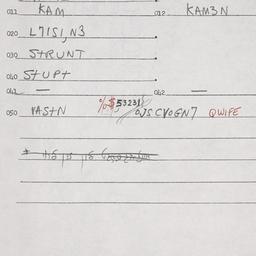 011 KAM 012 KAM3N
020 L7ISI,N3
030 STRUNT
040 STUPT
041 — 042 —
050 VASTN %$53231 OJSCVOGN7 QWIFE